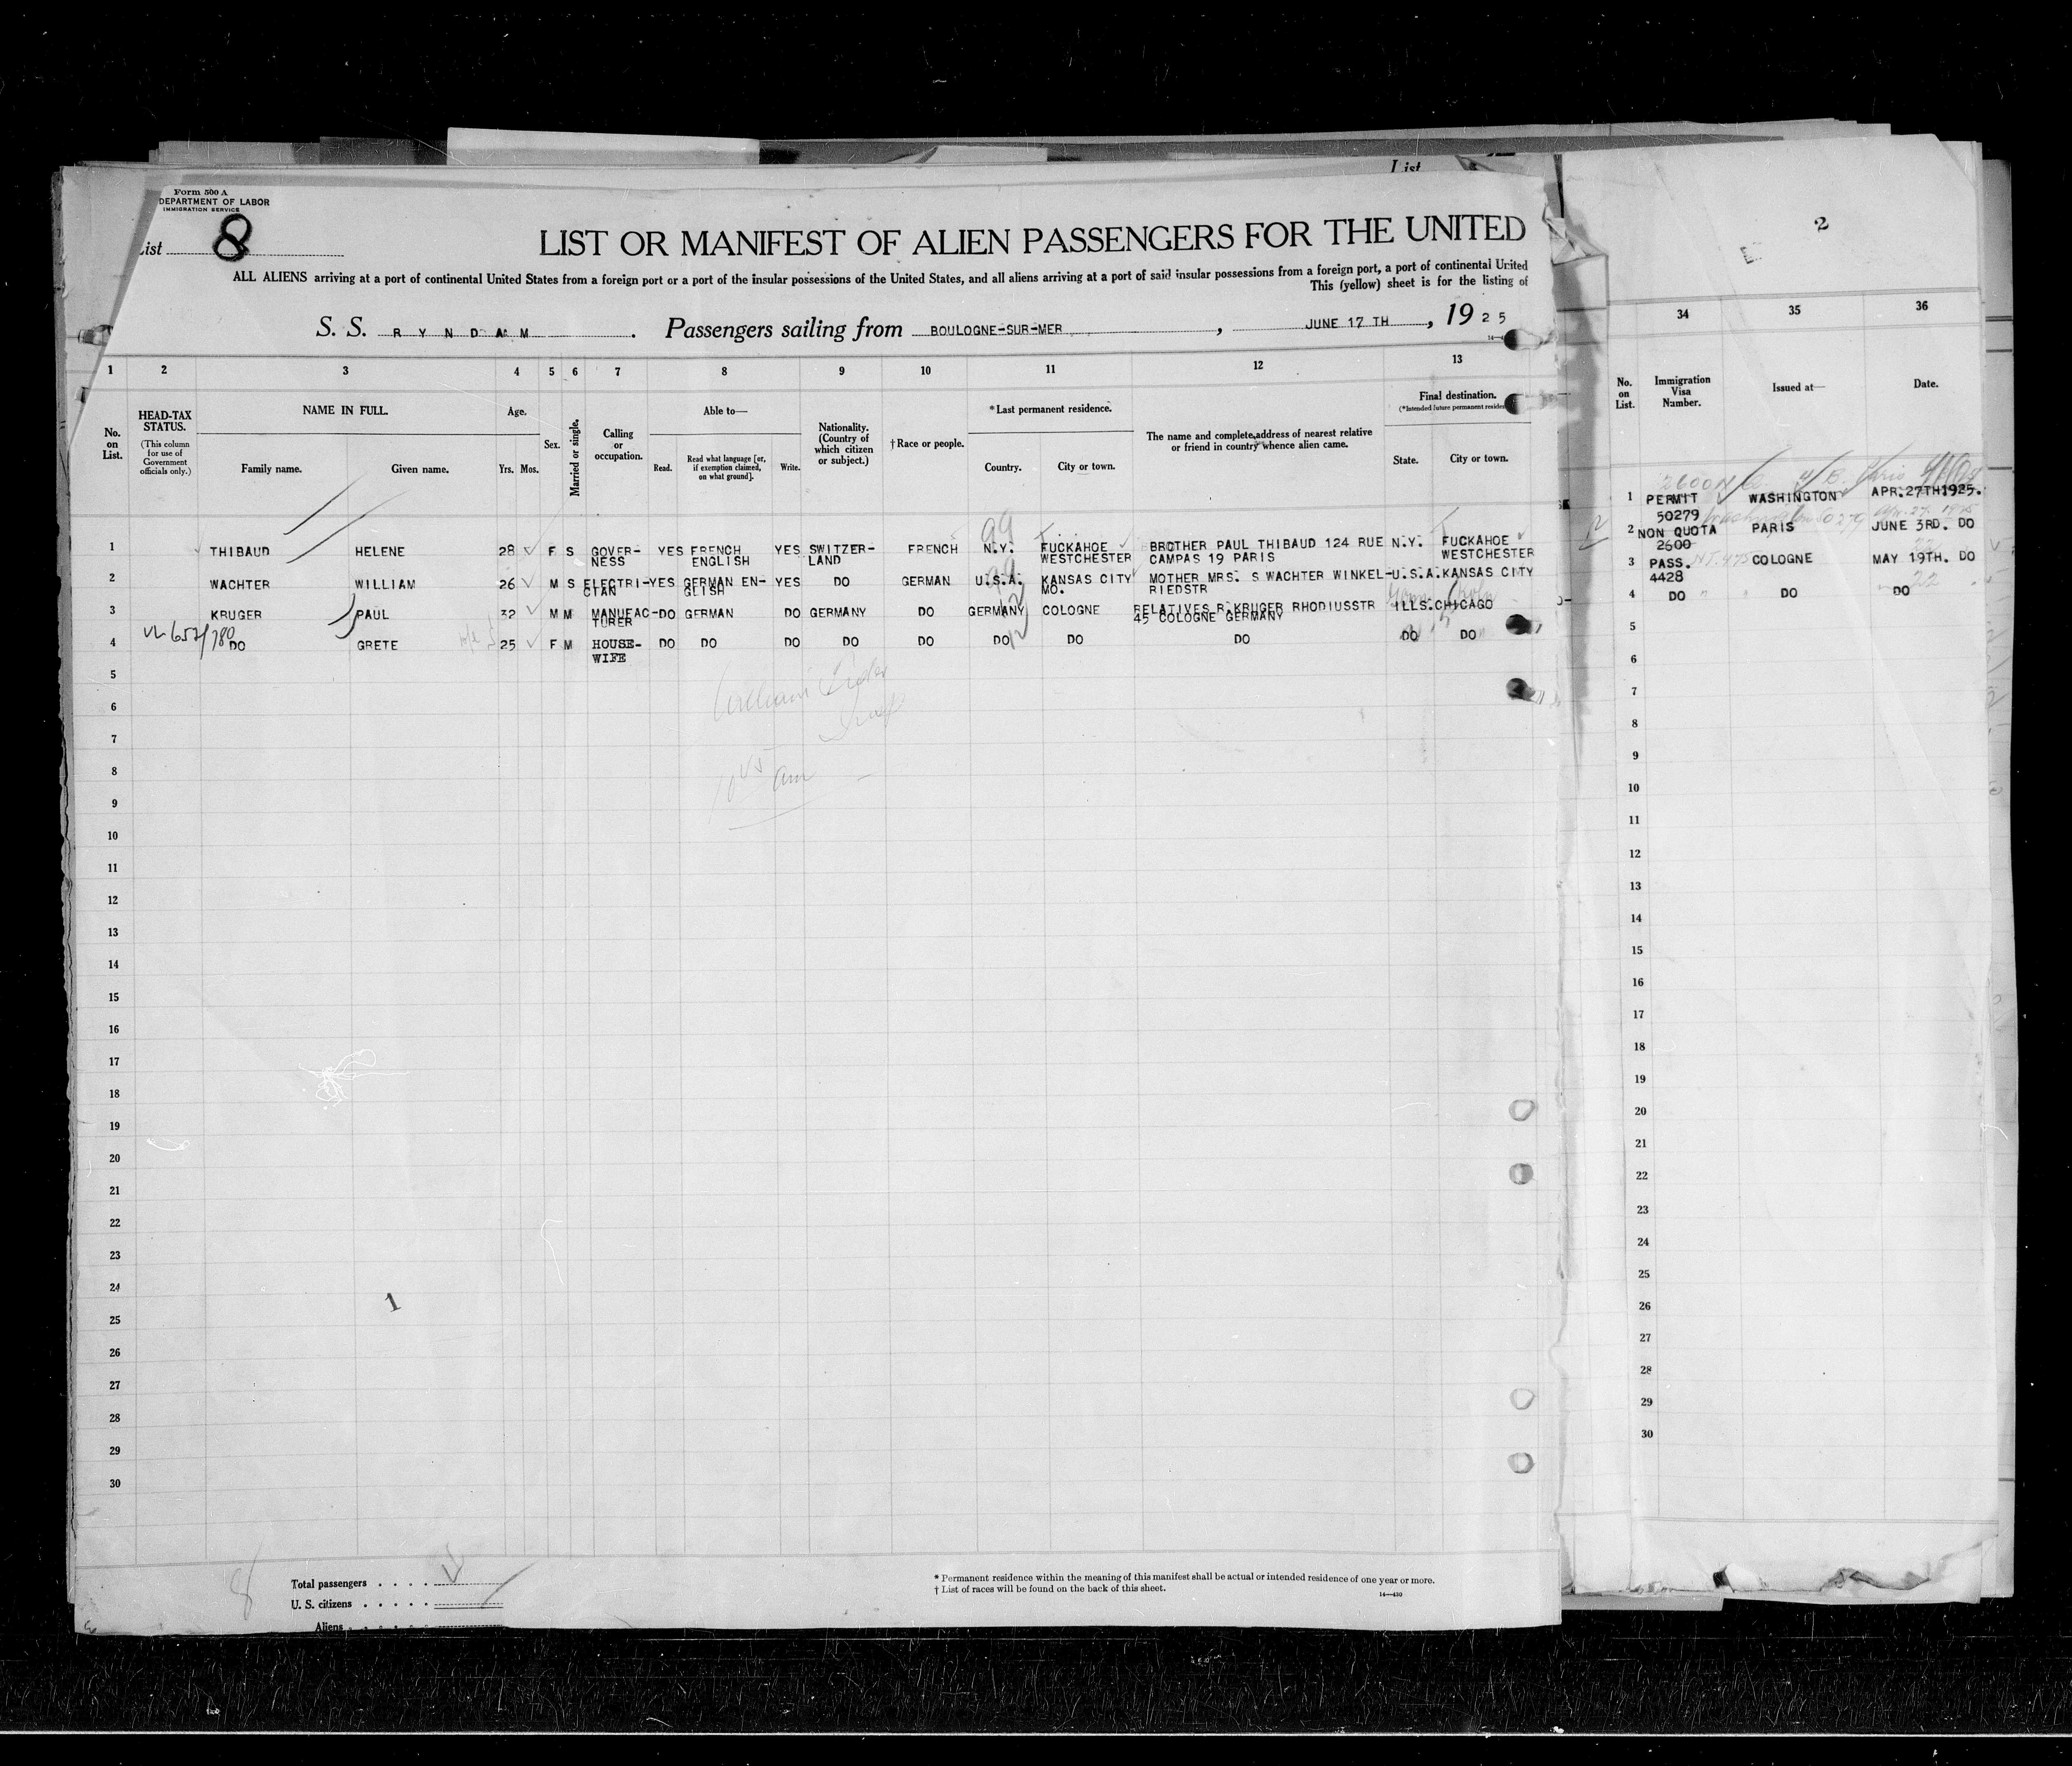 List
Form 500 A
DEPARTMENT OF LABOR
IMMIGRATION SERVICE
List 8
LIST OR MANIFEST OF ALIEN PASSENGERS FOR THE UNITED
ALL ALIENS arriving at a port of continental United States from a foreign port or a port of the insular possessions of the United States, and all aliens arriving at a port of said insular possessions from a foreign port, a port of continental United
This (yellow) sheet is for the listing of
S. S. RYNDAM. Passengers sailing from BOULOGNE-SUR-MER, JUNE 17 TH, 1925
1 2 3 4 5 6 7 8 9 10 11 12 13
No. on List.
HEAD-TAX STATUS.
(This column for use of Government officials only.)
NAME IN FULL.
Family name. Given name.
Age.
Yrs. Mos.
Sex.
Married or single.
Calling or occupation.
Able to—
Read. Read what language [or, if exemption claimed, on what ground]. Write.
Nationality. (Country of which citizen or subject.)
†Race or people.
*Last permanent residence.
Country. City or town.
The name and complete address of nearest relative or friend in country whence alien came.
Final destination.
(*Intended future permanent
State. City or town.
99
1 THIBAUD HELENE 28 F S GOVER- YES FRENCH YES SWITZER- FRENCH N.Y. FUCKAHOE BROTHER PAUL THIBAUD 124 RUE N.Y. FUCKAHOE
NESS ENGLISH LAND WESTCHESTER CAMPAS 19 PARIS WESTCHESTER
2 WACHTER WILLIAM 26 M S ELECTRI- YES GERMAN EN- YES DO GERMAN U.S.A. KANSAS CITY MOTHER MRS. S WACHTER WINKEL- U.S.A. KANSAS CITY
CIAN GLISH MO. RIEDSTR
3 KRUGER PAUL 32 M M MANUFAC- DO GERMAN DO GERMANY DO GERMANY COLOGNE RELATIVES R. KRUGER RHODIUSSTR ILLS. CHICAGO
TURER 45 COLOGNE GERMANY
4 DO GRETE 25 F M HOUSE- DO DO DO DO DO DO DO DO DO DO
WIFE
5
6
7
8
9
10
11
12
13
14
15
16
17
18
19
20
21
22
23
24
25
26
27
28
29
30
10 45 am
1
8
Total passengers
U. S. citizens
Aliens
* Permanent residence within the meaning of this manifest shall be actual or intended residence of one year or more.
† List of races will be found on the back of this sheet.
14—430
2
34 35 36
No. on List.
Immigration Visa Number.
Issued at—
Date.
1 PERMIT WASHINGTON APR.27TH1925.
50279
2 NON QUOTA PARIS JUNE 3RD. DO
2600
3 PASS. COLOGNE MAY 19TH. DO
4428
4 DO DO DO
5
6
7
8
9
10
11
12
13
14
15
16
17
18
19
20
21
22
23
24
25
26
27
28
29
30